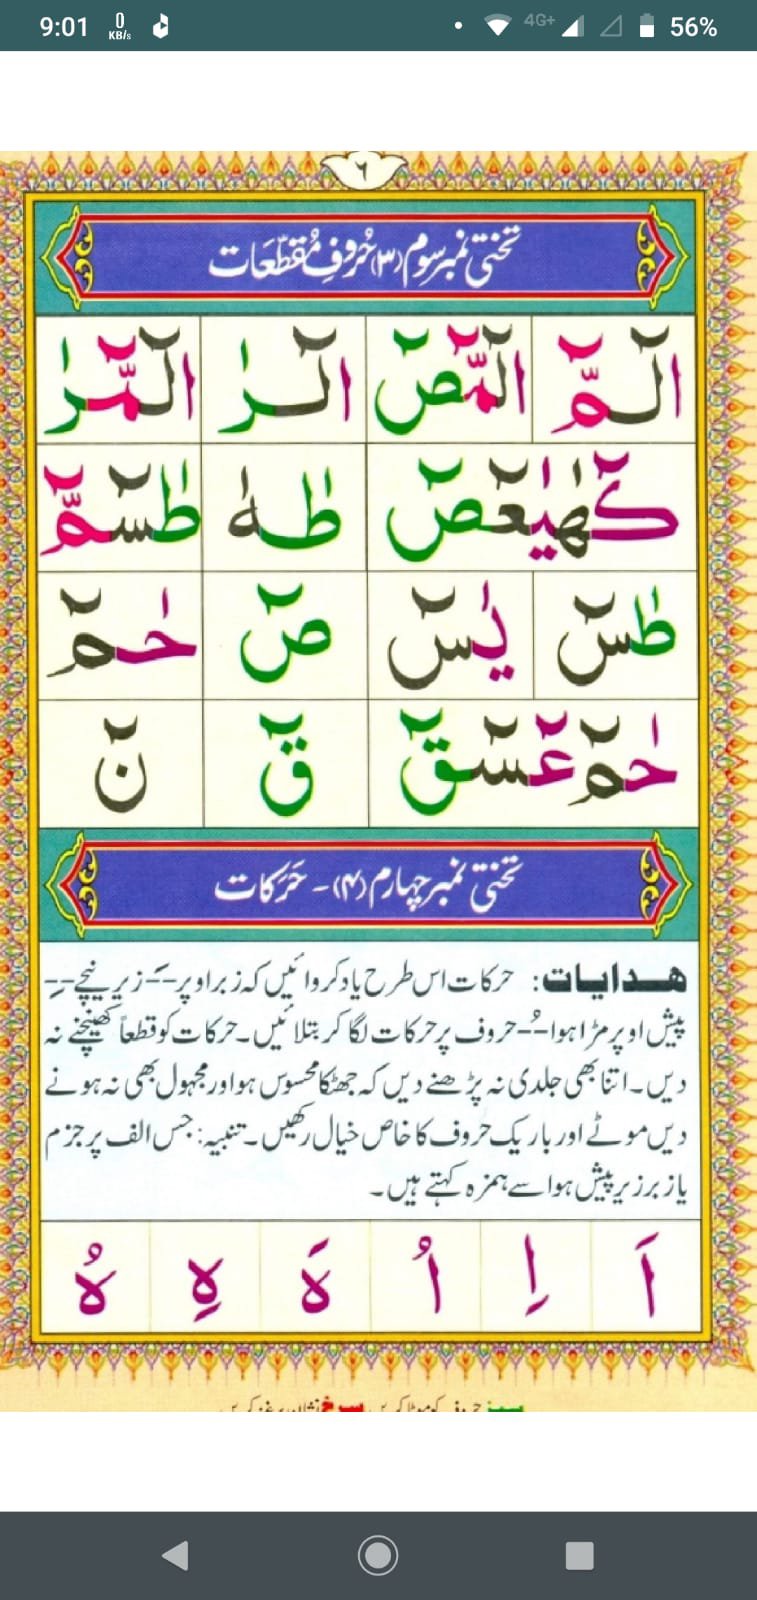 9:01 0 KB/s 4G+ 56%
٦
تختی نمبر سوم (۳) حُروفِ مُقَطَّعَات
الٓـمّٓ الٓمّٓصٓ الٓـرٰ الٓمّٓرٰ
كٓهٰيٰعٓصٓ طٰهٰ طٰسٓمّٓ
طٰسٓ يٰسٓ صٓ حٰمٓ
حٰمٓ عٓسٓقٓ قٓ نٓ
تختی نمبر چہارم (۴) - حَرَکات
ھدایات: حرکات اس طرح یاد کروائیں کہ زبر اوپر--َ-- زیر نیچے--ِ--
پیش اوپر مڑا ہوا--ُ-- حروف پر حرکات لگا کر بتلائیں۔ حرکات کو قطعاً کھینچنے نہ
دیں۔ اتنا بھی جلدی نہ پڑھنے دیں کہ جھٹکا محسوس ہو اور مجہول بھی نہ ہونے
دیں موٹے اور باریک حروف کا خاص خیال رکھیں۔ تنبیہ: جس الف پر جزم
یا زبر زیر پیش ہو اسے ہمزہ کہتے ہیں۔
اَ اِ اُ هَ هِ هُ
سبز حروف کو موٹا کریں، سرخ نشان پر غنہ کریں